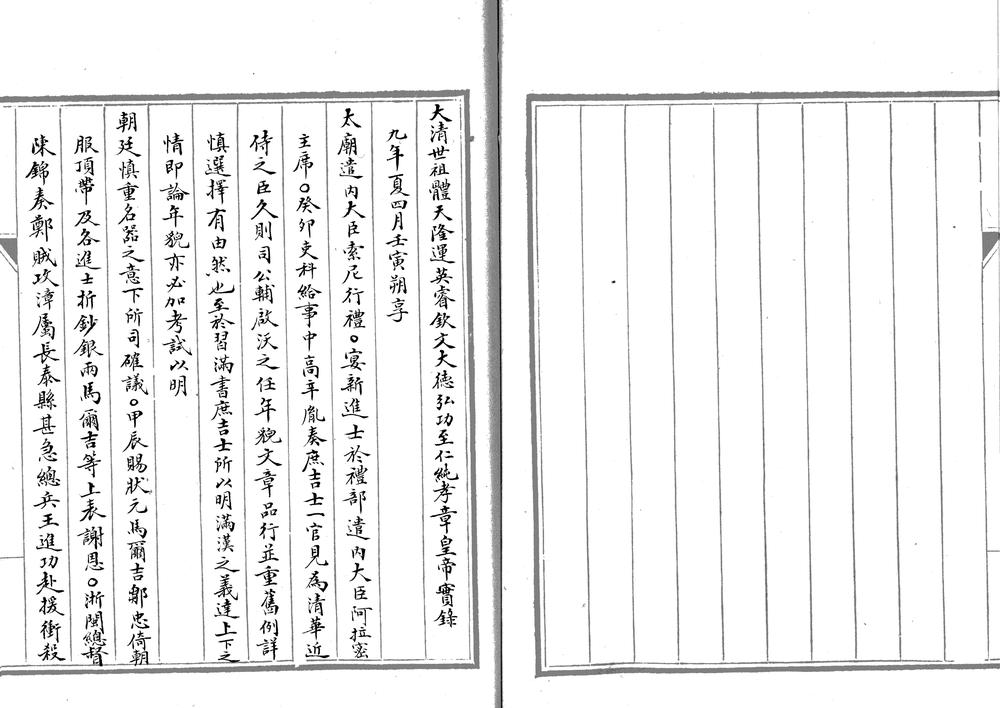 大清世祖體天隆運英睿欽文大德弘功至仁純孝章皇帝實錄
九年夏四月壬寅朔享
太廟遣內大臣索尼行禮○宴新進士於禮部遣內大臣阿拉密
主席○癸卯吏科給事中高辛胤奏庶吉士一官見為清華近
侍之臣久則司公輔啟沃之任年貌文章品行並重舊例詳
慎選擇有由然也至於習滿書庶吉士所以明滿漢之義達上下之
情即論年貌亦必加考試以明
朝廷慎重名器之意下所司確議○甲辰賜狀元馬爾吉鄒忠倚朝
服頂帶及各進士折鈔銀兩馬爾吉等上表謝恩○浙閩總督
陳錦奏鄭賊攻漳屬長泰縣甚急總兵王進功赴援衝殺